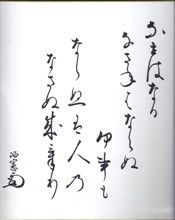 なせはなる
なさねはならぬ
何事も
ならぬは人の
なさぬ成けり
治憲